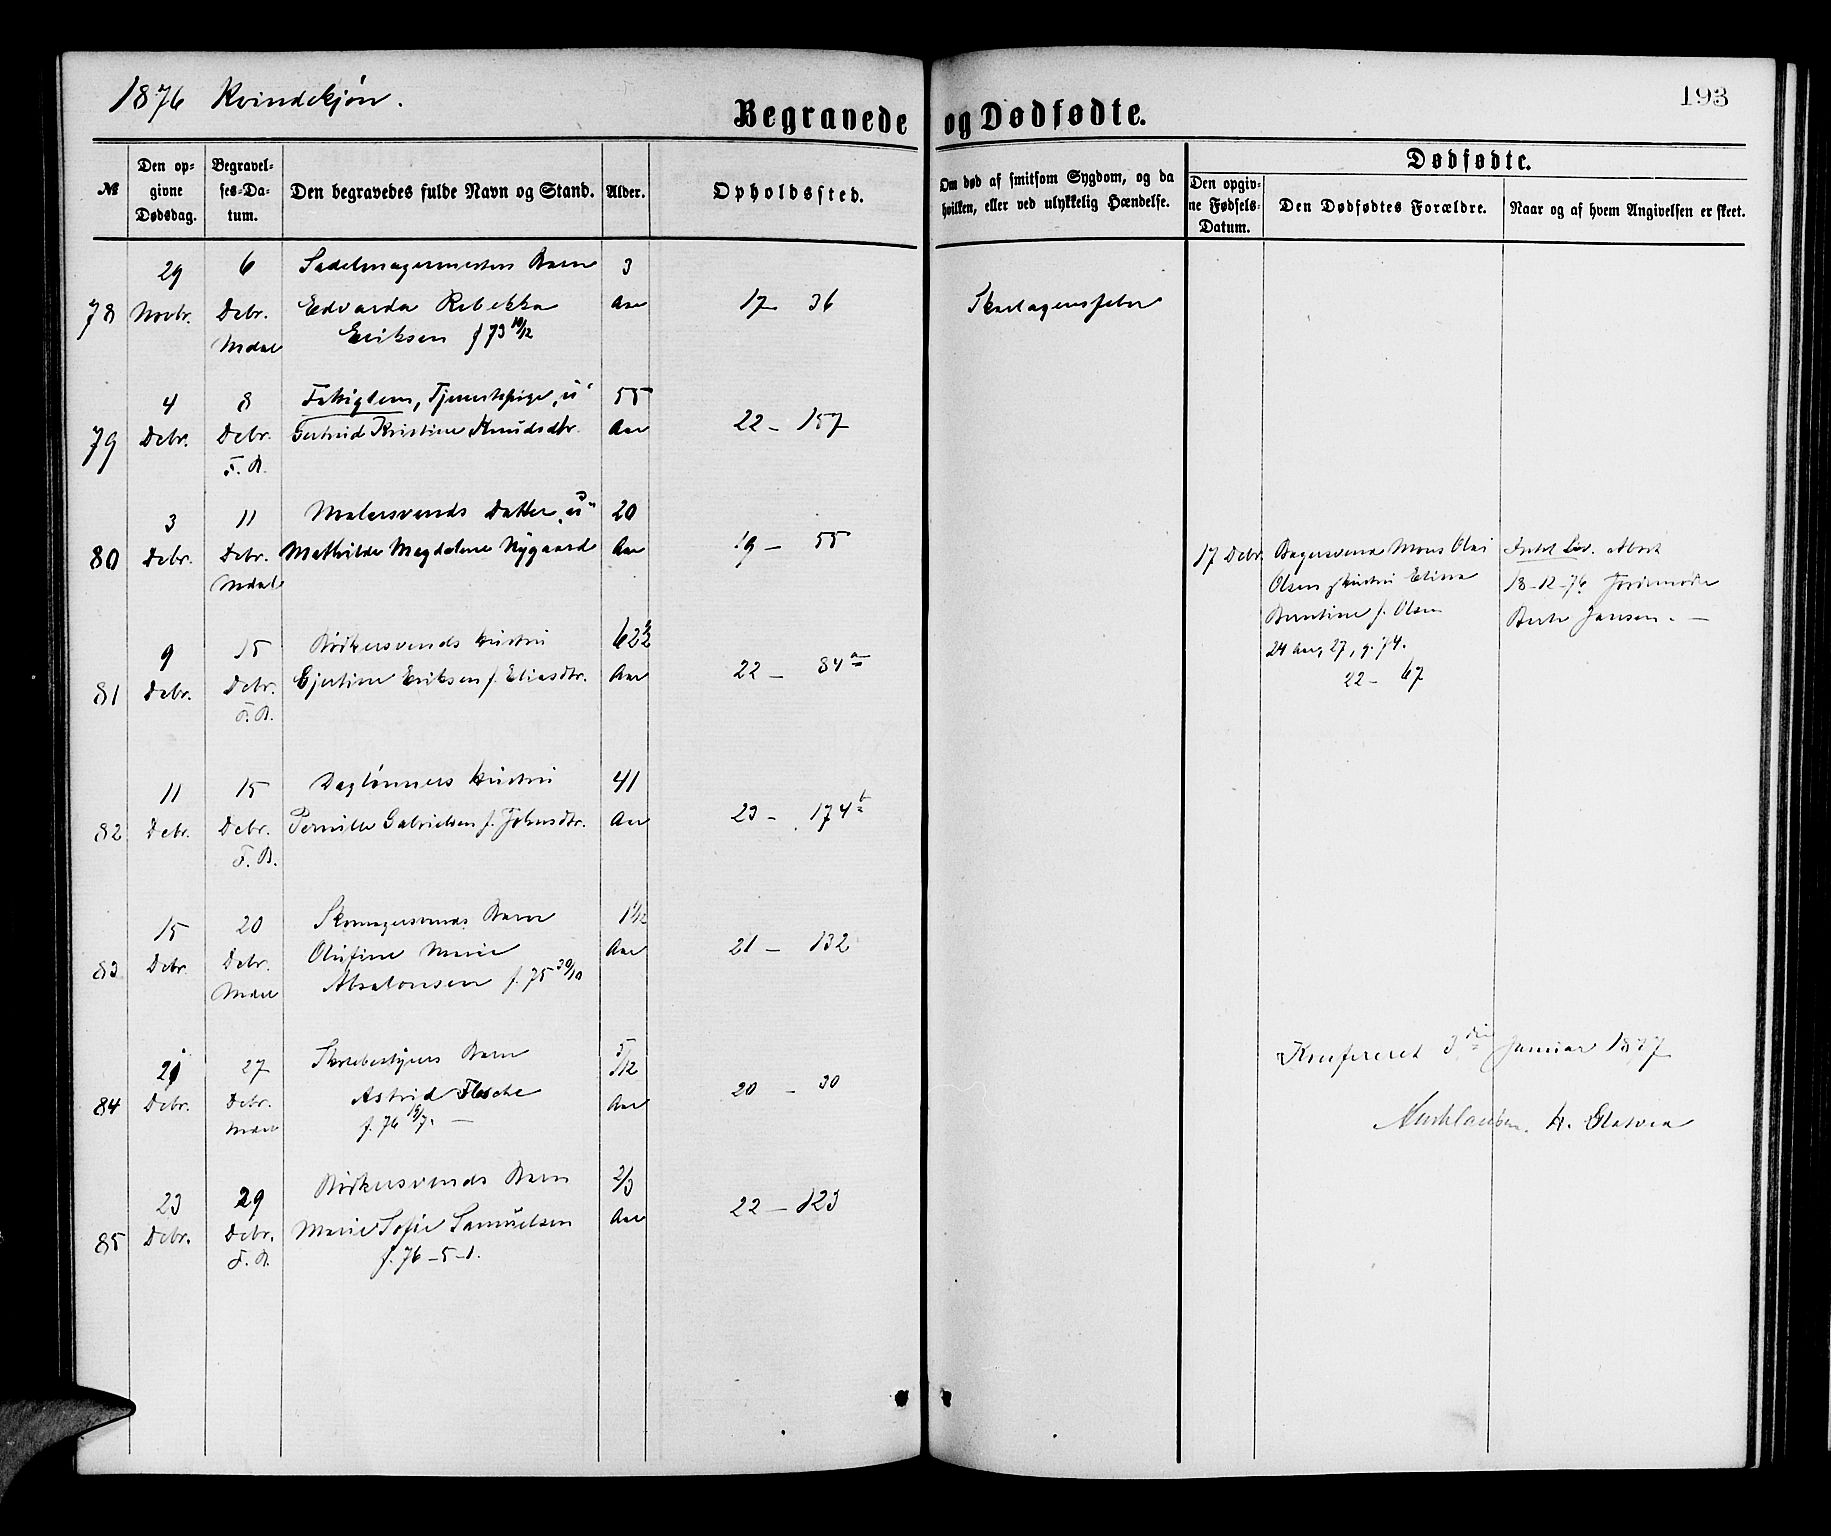 1876 Kvindekjøn.
Begravede og Dødfødte.
193
№
Den op-
givne
Dødsdag.
Begravel-
ses-Da-
tum.
Den begravedes fulde Navn og Stand.
Alder.
Opholdssted.
Om død af smitsom Sygdom, og da
hvilken, eller ved ulykkelig Hændelse.
Dødfødte.
Den opgiv-
ne Fødsels-
Datum.
Den Dødfødtes Forældre.
Naar og af hvem Angivelsen er skeet.
29 6 Sadelmagermesters Barn 3
78 Novbr. Debr. Edvarda Rebekka Aar 17 36 Skarlagensfeber
Eriksen f 73
4 8 Fattiglem, Tjenestepige, "u" 55
79 Debr. Debr. Gertrud Kristine Knudsdtr. Aar 22 - 157
F. B.
3 11 Malersvends Datter "u" 20
80 Debr. Debr. Mathilde Magdalene Nygaard Aar 19 - 55
17 Debr. Bagersvend Mons Olai
Olsen Hustru Elisa
Berntine f. Olsen
24 Aar, 27, g. 74.
22 - 67
18-12-76 Jordemoder
Berte Jansen. -
9 15 Bødkersvends Hustru 62 1/2
81 Debr. Debr. Gjertine Eriksen f. Eliasdtr. Aar 22 - 84 a
F. B.
11 15 Dagtønners Hustru 41
82 Debr. Debr. Pernille Gabrielsen f. Johnsdtr. Aar 23 - 174 b
F. B.
15 20 Skomagersvends Barn 1 1/12
83 Debr. Debr. Olufine Marie Aar 21 - 132
Absalonsen f. 75 30/10
21 27 Skolebestyrers Barn 5/12
84 Debr. Debr. Astrid Flesche Aar 20 - 30
f. 76 19/7. -
Konfereret 3 die Januar 1877
23 29 Bødkersvends Barn 2/3
85 Debr. Debr. Marie Sofie Samuelsen Aar 22 - 123
F. B. f. 76-5-1.